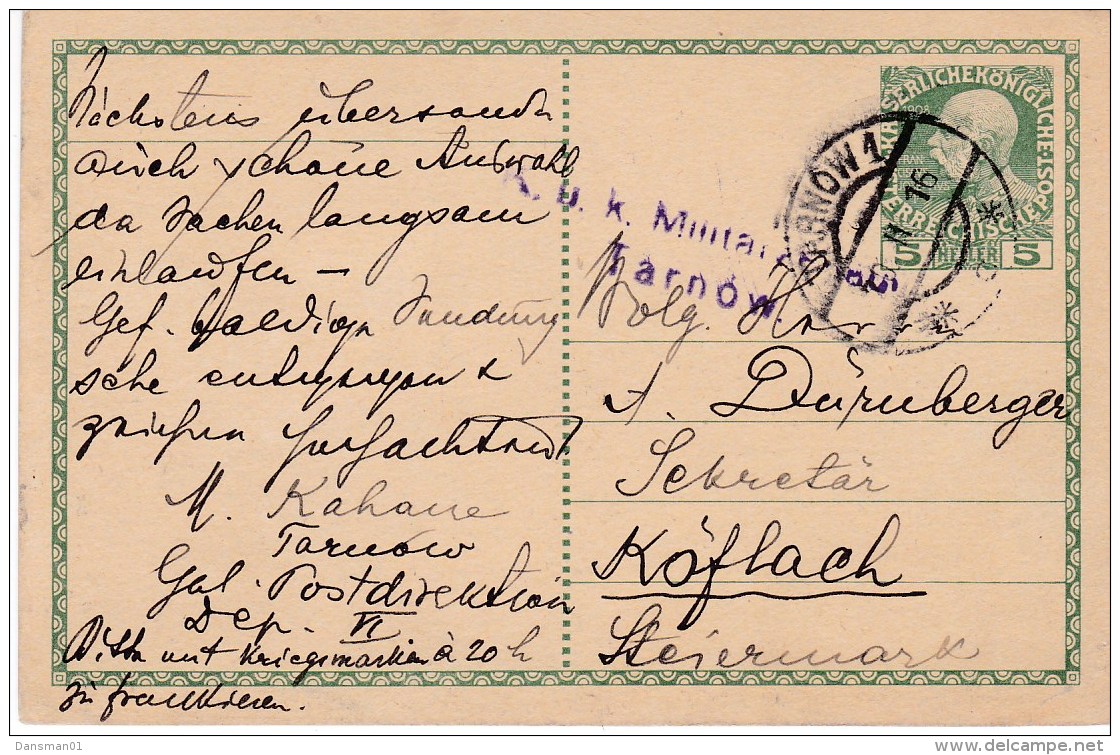 Nächstens übersende
auch schöne Auswahl
da Sachen langsam
einlaufen —
Gef. baldige Sendung
entgegen
M. Kahane
Tarnów
Gal. Postdirektion
Dep. VI
Bitte mit Kriegsmarken à 20 h
zu frankieren.
KAISERLICHE KÖNIGLICHE
ÖSTERREICHISCHE
1908
5 HELLER 5
TARNÓW 1
16
u. k. Militärzensur
Tarnów
Wolg. Herr
A. Dürnberger
Sekretär
Köflach
Steiermark
Dansman01
delcampe.net